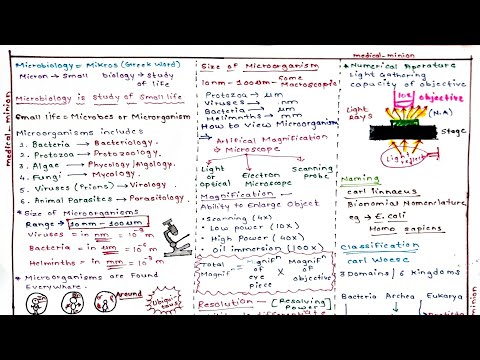 Microbiology = Mikros (Greek Word)
Micron → Small biology → study of life
Microbiology is study of Small life
Small life = Microbes or Microorganism
Microorganisms includes
1. Bacteria → Bacteriology.
2. Protozoa → Protozoology.
3. Algae → Phycology/Algology.
4. Fungi → Mycology.
5. Viruses (Prions) → Virology.
6. Animal Parasites → Parasitology.
* Size of Microorganisms
Range → 10nm - 100um
Viruses = in nm = 10⁻⁹m
Bacteria = in um = 10⁻⁶m
Helminths = in mm = 10⁻³m
* Microorganisms are Found Everywhere.
Around
Ubiqi-tous
medical-minion
Size of Microorganism
10nm - 100um - Some Macroscopic
Protozoa → um
Viruses → nm
Bacteria → um
Helminths → mm
How to View Microorganism
→ Artifical Magnification
Microscope
Light or optical
Electron Microscope
Scanning probe
Magnification
Ability to Enlarge Object
• Scanning (4x)
• Low power (10x)
• High Power (40x)
• Oil immersion (100x)
Total Magnifⁿ = Magnifⁿ of eye piece X Magnifⁿ of objective
Resolution - [Resolving Power]
medical-minion
* Numerical Aperature
Light gathering capacity of objective
10x
objective
Light Rays
(N.A)
Stage
Naming
carl linnaeus
Bionomial Nomenclature
eg → E.coli
Homo sapiens
Classification
carl Woese
3 Domains / 6 Kingdoms
Bacteria Archea Eukarya